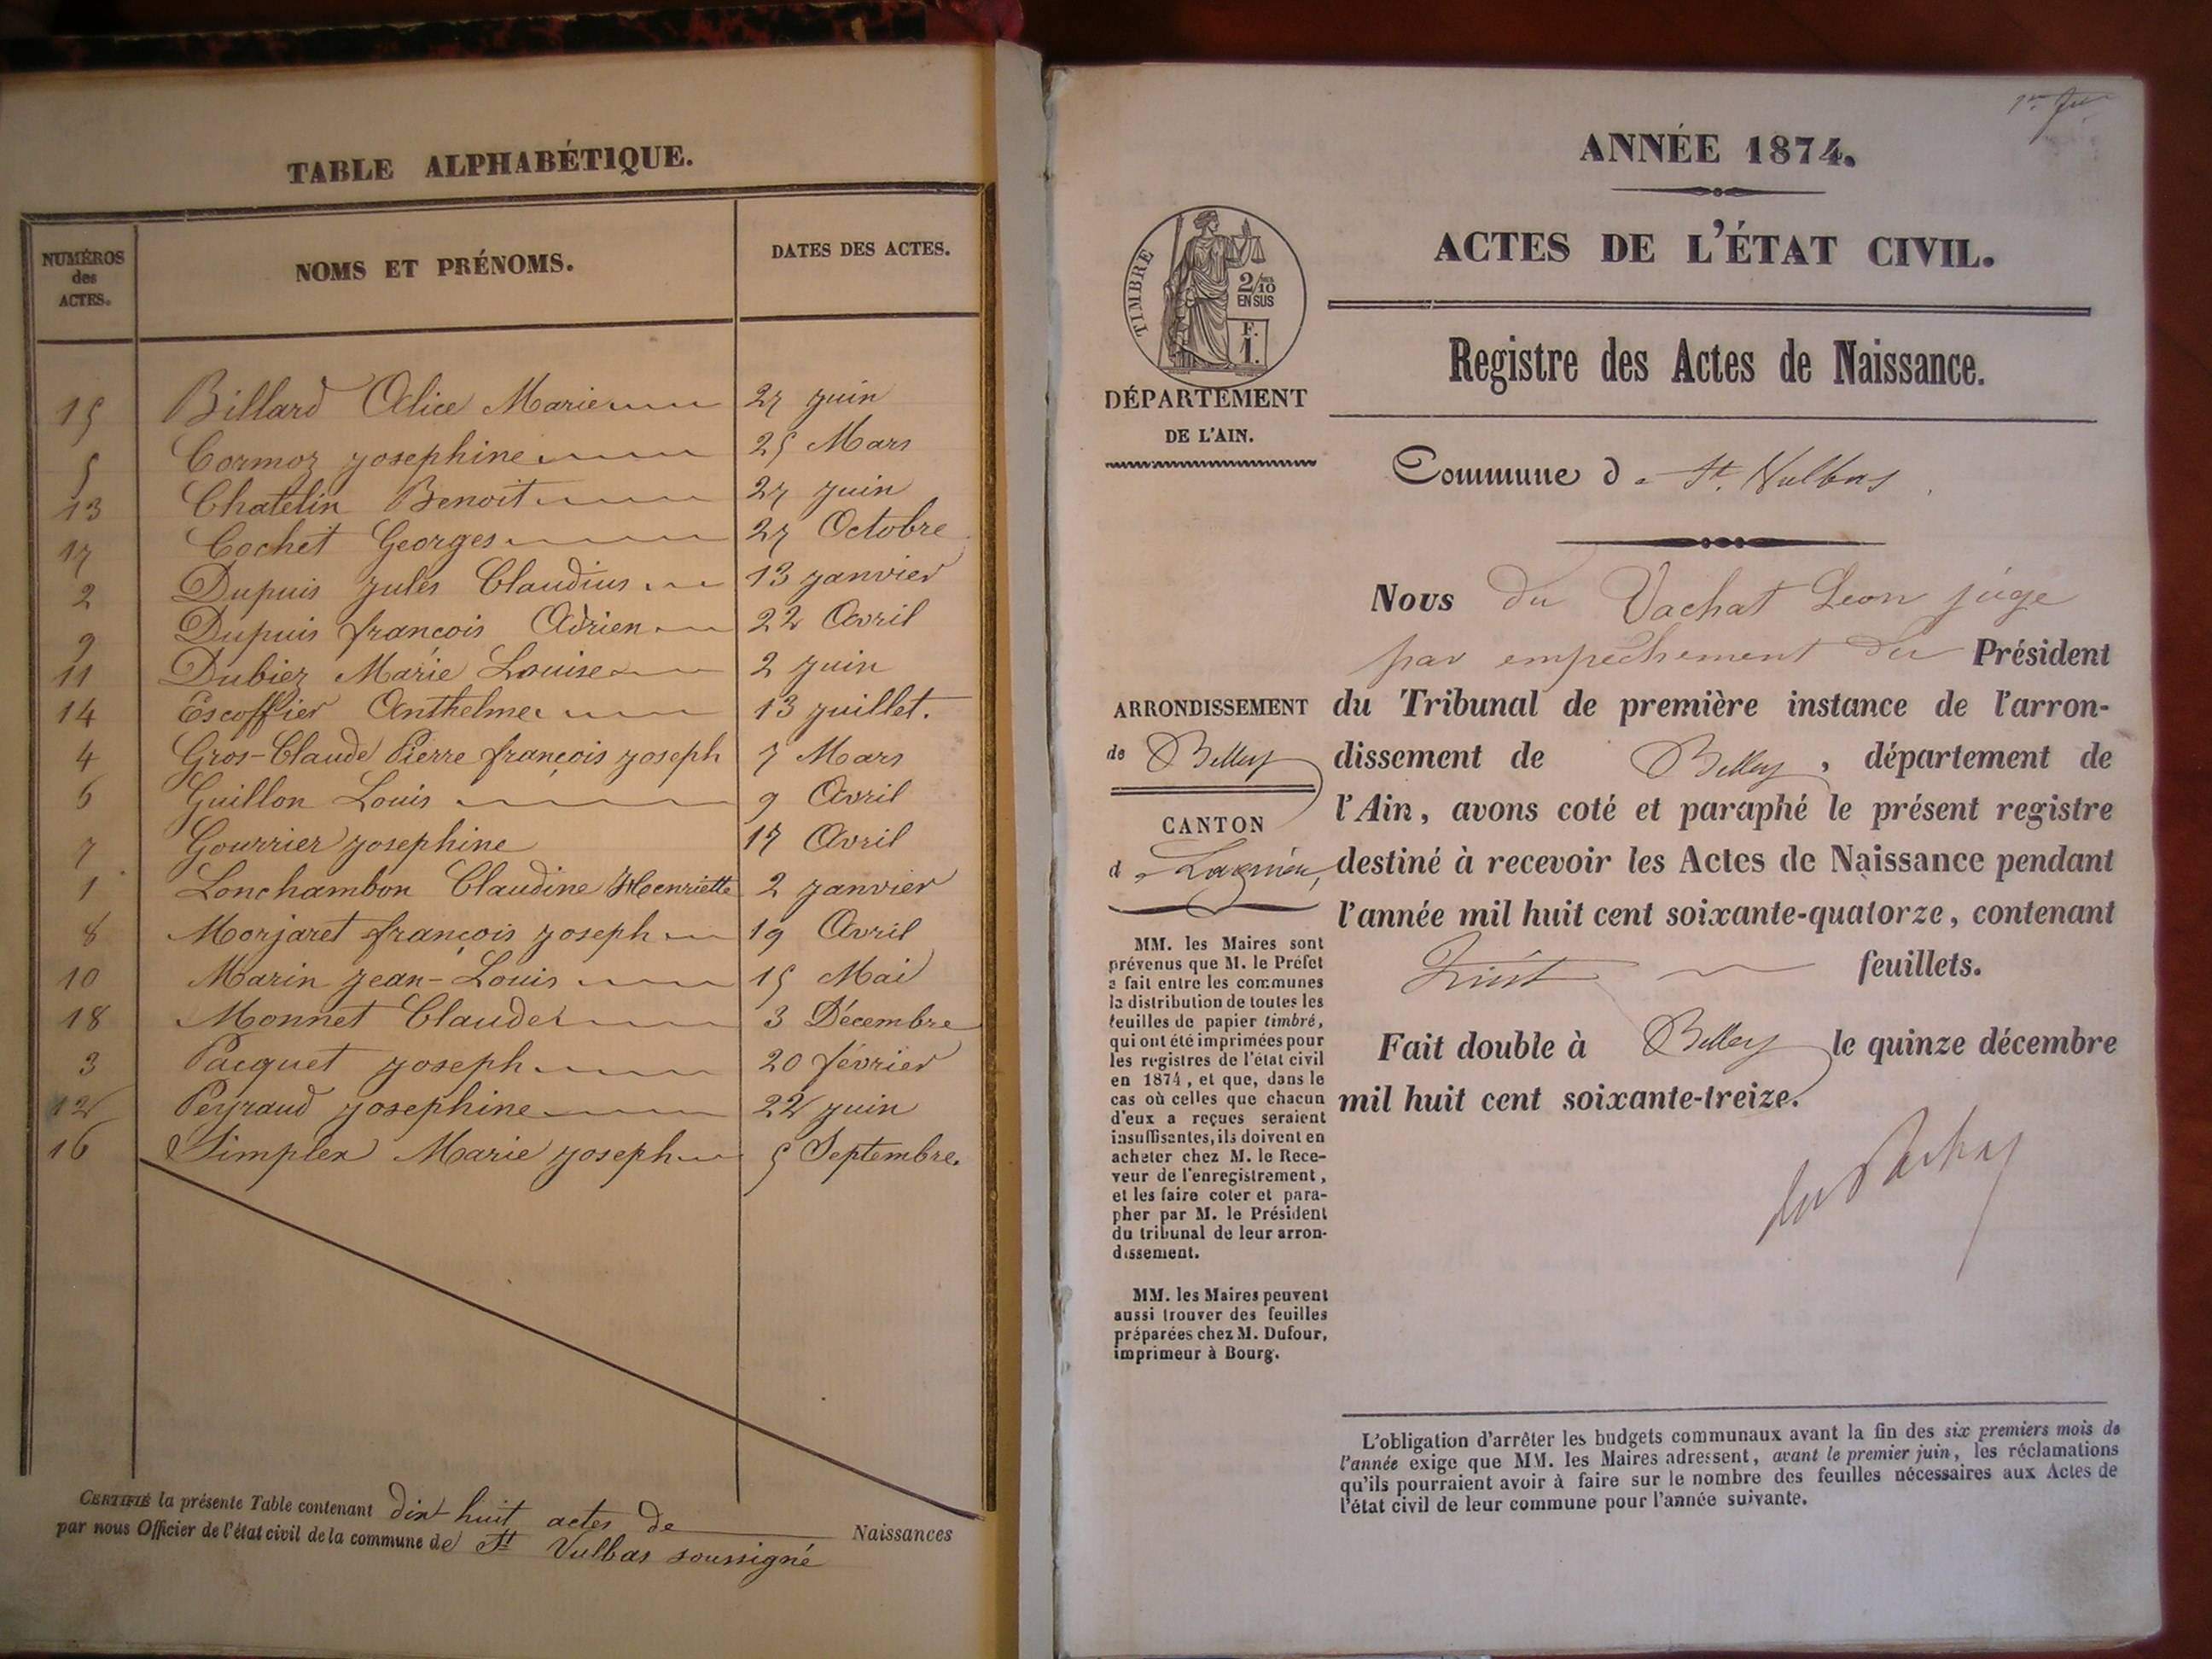 TABLE ALPHABÉTIQUE.
NUMÉROS des ACTES. NOMS ET PRÉNOMS. DATES DES ACTES.
15 Billard Alice Marie 27 juin
5 Cormoz josephine 25 Mars
13 Chatelin Benoit 27 juin
17 Cochet Georges 27 Octobre
2 Dupuis jules Claudius 13 janvier
9 Dupuis françois Adrien 22 Avril
11 Dubiez Marie Louise 2 juin
14 Escoffier Anthelme 13 juillet.
4 Gros-Claude Pierre françois joseph 7 Mars
6 Guillon Louis 9 Avril
7 Gourrier josephine 17 Avril
1 Lonchambon Claudine Henriette 2 janvier
8 Morjaret françois joseph 19 Avril
10 Marin jean-Louis 15 Mai
18 Monnet Claude 3 Décembre
3 Pacquet joseph 20 février
12 Peyraud josephine 22 juin
16 Simplex Marie joseph 5 Septembre.
CERTIFIÉ la présente Table contenant dix huit actes de Naissances
par nous Officier de l'état civil de la commune de St Vulbas soussigné
ANNÉE 1874.
ACTES DE L'ÉTAT CIVIL.
TIMBRE
2/10
EN SUS
F.
1.
DÉPARTEMENT
DE L'AIN.
Registre des Actes de Naissance.
Commune de St. Vulbas
Nous du Vachat Leon juge
par empêchement du Président
du Tribunal de première instance de l'arron-
dissement de Belley, département de
l'Ain, avons coté et paraphé le présent registre
destiné à recevoir les Actes de Naissance pendant
l'année mil huit cent soixante-quatorze, contenant
huit feuillets.
Fait double à Belley le quinze décembre
mil huit cent soixante-treize.
du Vachat
ARRONDISSEMENT
de Belley
CANTON
de Lagnieu,
MM. les Maires sont
prévenus que M. le Préfet
a fait entre les communes
la distribution de toutes les
feuilles de papier timbré,
qui ont été imprimées pour
les registres de l'état civil
en 1874, et que, dans le
cas où celles que chacun
d'eux a reçues seraient
insuffisantes, ils doivent en
acheter chez M. le Rece-
veur de l'enregistrement,
et les faire coter et para-
pher par M. le Président
du tribunal de leur arron-
dissement.
MM. les Maires peuvent
aussi trouver des feuilles
préparées chez M. Dufour,
imprimeur à Bourg.
L'obligation d'arrêter les budgets communaux avant la fin des six premiers mois de
l'année exige que MM. les Maires adressent, avant le premier juin, les réclamations
qu'ils pourraient avoir à faire sur le nombre des feuilles nécessaires aux Actes de
l'état civil de leur commune pour l'année suivante.